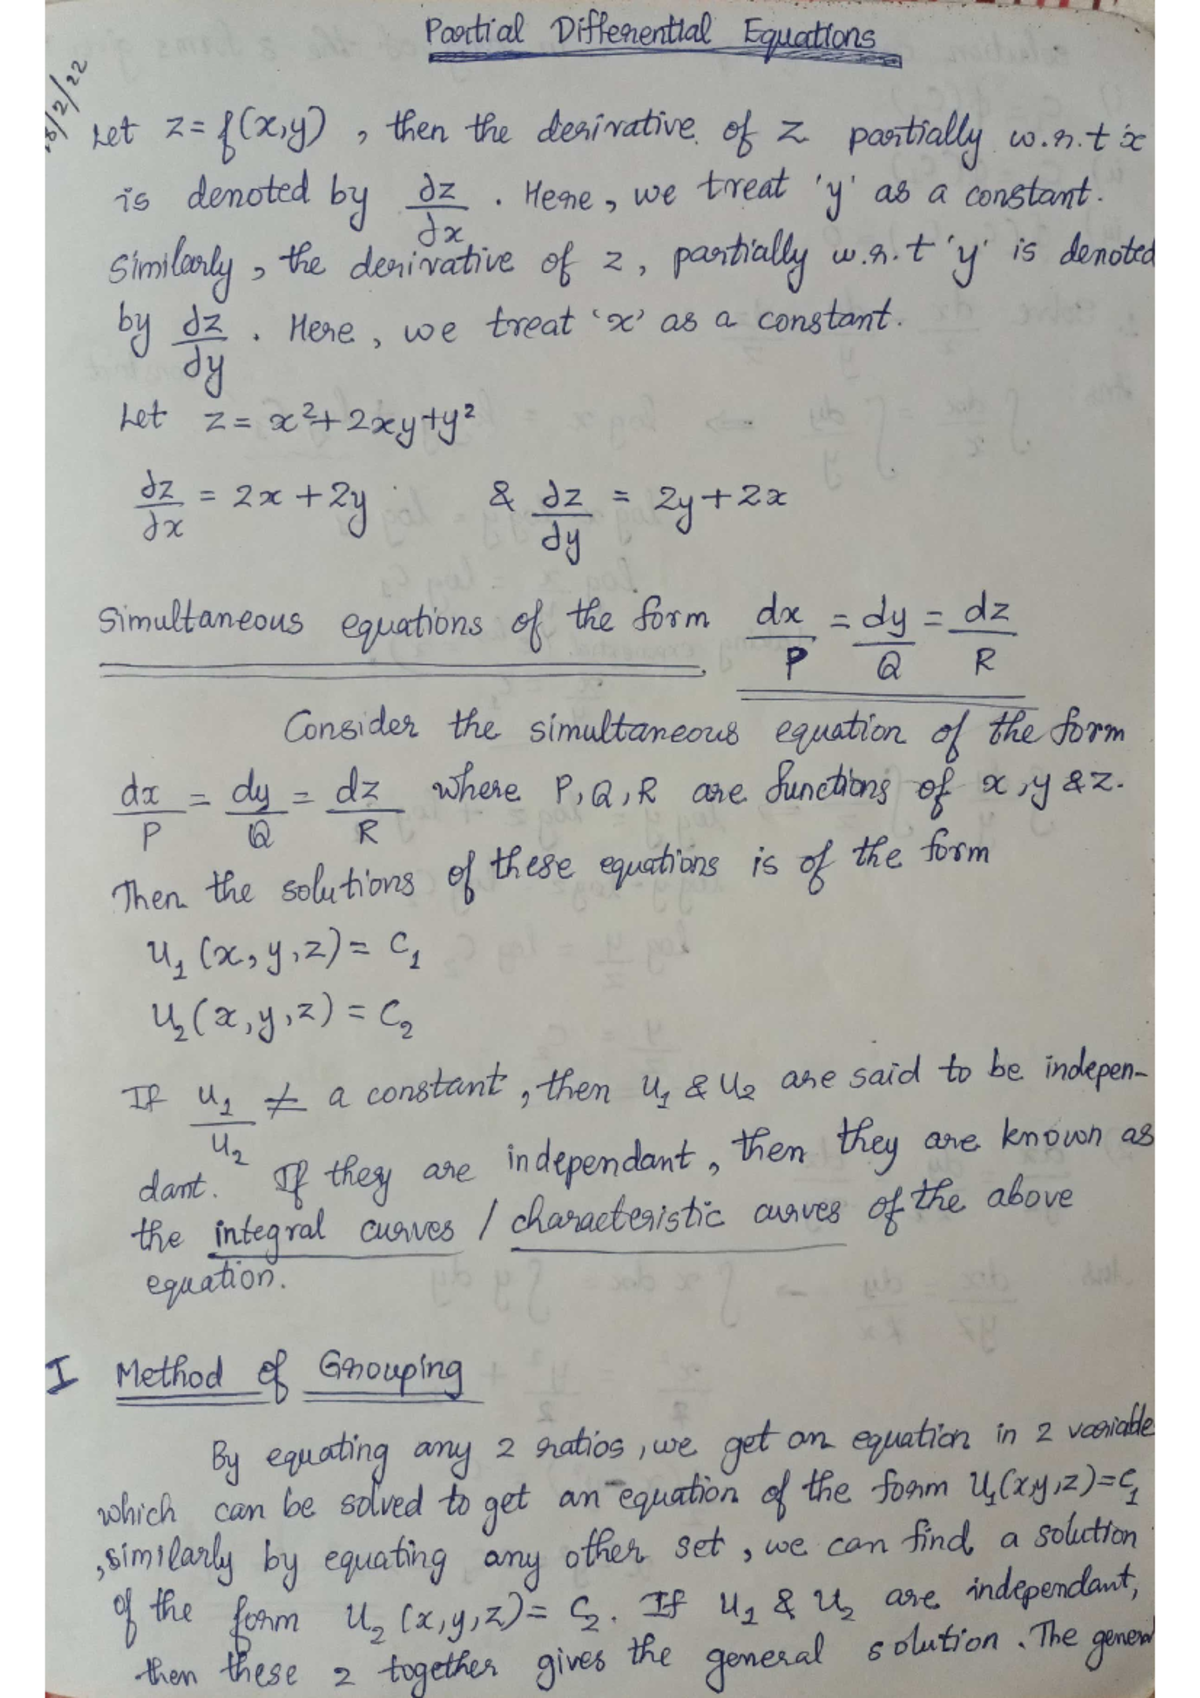 Partial Differential Equations
/2/22
Let z = f(x,y) , then the derivative of z partially w.r.t 'x'
is denoted by ∂z/∂x . Here, we treat 'y' as a constant.
Similarly, the derivative of z, partially w.r.t 'y' is denoted
by ∂z/∂y . Here, we treat 'x' as a constant.
Let z = x²+2xy+y²
∂z/∂x = 2x+2y & ∂z/∂y = 2y+2x
Simultaneous equations of the form dx/P = dy/Q = dz/R
Consider the simultaneous equation of the form
dx/P = dy/Q = dz/R where P,Q,R are functions of x,y & z.
Then the solutions of these equations is of the form
u₁(x,y,z) = C₁
u₂(x,y,z) = C₂
If u₁/u₂ ≠ a constant, then u₁ & u₂ are said to be indepen-
dant. If they are independant, then they are known as
the integral curves / characteristic curves of the above
equation.
I Method of Grouping
By equating any 2 ratios, we get an equation in 2 variable
which can be solved to get an equation of the form u₁(x,y,z)=C₁
, similarly by equating any other set, we can find a solution
of the form u₂(x,y,z)= C₂. If u₁ & u₂ are independant,
then these 2 together gives the general solution. The general